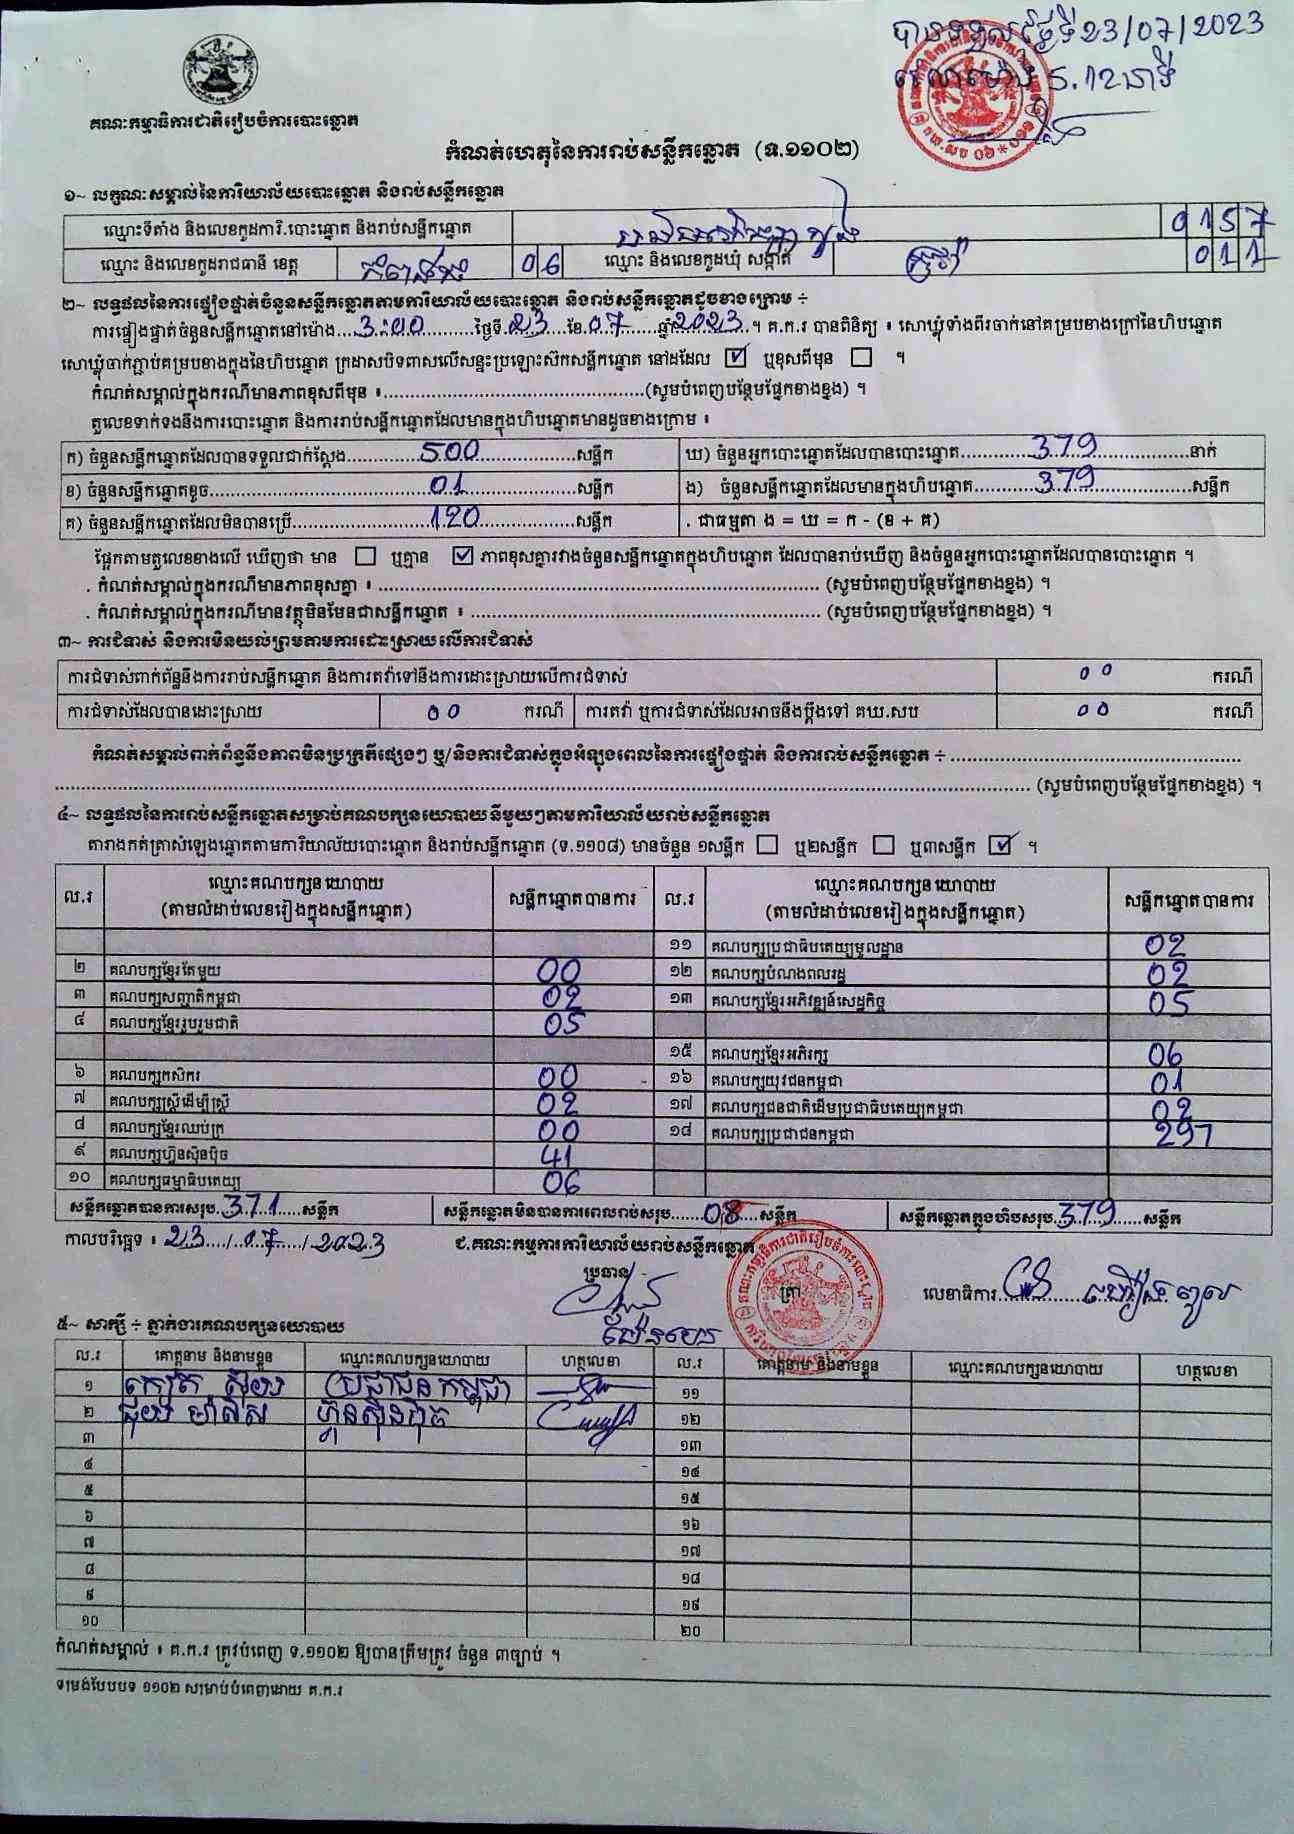 បានទទួលថ្ងៃទី23/07/2023
វេលាម៉ោង 5.12នាទី
គណៈកម្មាធិការជាតិរៀបចំការបោះឆ្នោត
កំណត់ហេតុនៃការរាប់សន្លឹកឆ្នោត (ទ.១១០២)
១~ លក្ខណៈសម្គាល់នៃការិយាល័យបោះឆ្នោត និងរាប់សន្លឹកឆ្នោត
ឈ្មោះទីតាំង និងលេខកូដការិ.បោះឆ្នោត និងរាប់សន្លឹកឆ្នោត 0157
ឈ្មោះ និងលេខកូដរាជធានី ខេត្ត 06 ឈ្មោះ និងលេខកូដឃុំ សង្កាត់ 011
២~ លទ្ធផលនៃការផ្ទៀងផ្ទាត់ចំនួនសន្លឹកឆ្នោតតាមការិយាល័យបោះឆ្នោត និងរាប់សន្លឹកឆ្នោតដូចខាងក្រោម ÷
ការផ្ទៀងផ្ទាត់ចំនួនសន្លឹកឆ្នោតនៅម៉ោង...3:00...ថ្ងៃទី.23...ខែ.07...ឆ្នាំ2023.។ គ.ក.រ បានពិនិត្យ ៖ សោឃ្លុំទាំងពីរចាក់នៅគម្របខាងក្រៅនៃហិបឆ្នោត
សោឃ្លុំចាក់ភ្ជាប់គម្របខាងក្នុងនៃហិបឆ្នោត ក្រដាសបិទពាសលើសន្ទះប្រឡោះស៊កសន្លឹកឆ្នោត នៅដដែល ☑ ឬខុសពីមុន ☐ ។
កំណត់សម្គាល់ក្នុងករណីមានភាពខុសពីមុន ៖...(សូមបំពេញបន្ថែមផ្នែកខាងខ្នង) ។
តួលេខទាក់ទងនឹងការបោះឆ្នោត និងការរាប់សន្លឹកឆ្នោតដែលមានក្នុងហិបឆ្នោតមានដូចខាងក្រោម ៖
ក) ចំនួនសន្លឹកឆ្នោតដែលបានទទួលជាក់ស្តែង...500...សន្លឹក ឃ) ចំនួនអ្នកបោះឆ្នោតដែលបានបោះឆ្នោត...379...នាក់
ខ) ចំនួនសន្លឹកឆ្នោតខូច...01...សន្លឹក ង) ចំនួនសន្លឹកឆ្នោតដែលមានក្នុងហិបឆ្នោត...379...សន្លឹក
គ) ចំនួនសន្លឹកឆ្នោតដែលមិនបានប្រើ...120...សន្លឹក . ជាធម្មតា ង = ឃ = ក - (ខ + គ)
ផ្អែកតាមតួលេខខាងលើ ឃើញថា មាន ☐ ឬគ្មាន ☑ ភាពខុសគ្នារវាងចំនួនសន្លឹកឆ្នោតក្នុងហិបឆ្នោត ដែលបានរាប់ឃើញ និងចំនួនអ្នកបោះឆ្នោតដែលបានបោះឆ្នោត ។
. កំណត់សម្គាល់ក្នុងករណីមានភាពខុសគ្នា ៖ ... (សូមបំពេញបន្ថែមផ្នែកខាងខ្នង) ។
. កំណត់សម្គាល់ក្នុងករណីមានវត្ថុមិនមែនជាសន្លឹកឆ្នោត ៖ ... (សូមបំពេញបន្ថែមផ្នែកខាងខ្នង) ។
៣~ ការជំទាស់ និងការមិនយល់ព្រមតាមការដោះស្រាយលើការជំទាស់
ការជំទាស់ពាក់ព័ន្ធនឹងការរាប់សន្លឹកឆ្នោត និងការតវ៉ាទៅនឹងការដោះស្រាយលើការជំទាស់ 00 ករណី
ការជំទាស់ដែលបានដោះស្រាយ 00 ករណី ការតវ៉ា ឬការជំទាស់ដែលអាចនឹងប្តឹងទៅ គឃ.សប 00 ករណី
កំណត់សម្គាល់ពាក់ព័ន្ធនឹងភាពមិនប្រក្រតីផ្សេងៗ ឬ/និងការជំទាស់ក្នុងអំឡុងពេលនៃការផ្ទៀងផ្ទាត់ និងការរាប់សន្លឹកឆ្នោត ÷ ...
... (សូមបំពេញបន្ថែមផ្នែកខាងខ្នង) ។
៤~ លទ្ធផលនៃការរាប់សន្លឹកឆ្នោតសម្រាប់គណបក្សនយោបាយនីមួយៗតាមការិយាល័យរាប់សន្លឹកឆ្នោត
តារាងកត់ត្រាសំឡេងឆ្នោតតាមការិយាល័យបោះឆ្នោត និងរាប់សន្លឹកឆ្នោត (ទ.១១០៨) មានចំនួន ១សន្លឹក ☐ ឬ២សន្លឹក ☐ ឬ៣សន្លឹក ☑ ។
ល.រ ឈ្មោះគណបក្សនយោបាយ (តាមលំដាប់លេខរៀងក្នុងសន្លឹកឆ្នោត) សន្លឹកឆ្នោតបានការ ល.រ ឈ្មោះគណបក្សនយោបាយ (តាមលំដាប់លេខរៀងក្នុងសន្លឹកឆ្នោត) សន្លឹកឆ្នោតបានការ
១១ គណបក្សប្រជាធិបតេយ្យមូលដ្ឋាន 02
២ គណបក្សខ្មែរតែមួយ 00 ១២ គណបក្សបំណងពលរដ្ឋ 02
៣ គណបក្សសញ្ជាតិកម្ពុជា 02 ១៣ គណបក្សខ្មែរអភិវឌ្ឍន៍សេដ្ឋកិច្ច 05
៤ គណបក្សខ្មែររួបរួមជាតិ 05
១៥ គណបក្សខ្មែរអភិរក្ស 06
៦ គណបក្សកសិករ 00 ១៦ គណបក្សយុវជនកម្ពុជា 01
៧ គណបក្សស្ត្រីដើម្បីស្ត្រី 02 ១៧ គណបក្សជនជាតិដើមប្រជាធិបតេយ្យកម្ពុជា 02
៨ គណបក្សខ្មែរឈប់ក្រ 00 ១៨ គណបក្សប្រជាជនកម្ពុជា 297
៩ គណបក្សហ្វ៊ុនស៊ិនប៉ិច 41
១០ គណបក្សធម្មាធិបតេយ្យ 06
សន្លឹកឆ្នោតបានការសរុប.371...សន្លឹក សន្លឹកឆ្នោតមិនបានការពេលរាប់សរុប...08...សន្លឹក សន្លឹកឆ្នោតក្នុងហិបសរុប.379...សន្លឹក
កាលបរិច្ឆេទ ៖ 23/07/2023 ជ.គណៈកម្មការការិយាល័យរាប់សន្លឹកឆ្នោត
ប្រធាន ត្រា លេខាធិការ
៥~ សាក្សី ÷ ភ្នាក់ងារគណបក្សនយោបាយ
ល.រ គោត្តនាម និងនាមខ្លួន ឈ្មោះគណបក្សនយោបាយ ហត្ថលេខា ល.រ គោត្តនាម និងនាមខ្លួន ឈ្មោះគណបក្សនយោបាយ ហត្ថលេខា
១ ប្រជាជនកម្ពុជា ១១
២ ហ៊្វុនស៊ិនប៉ិច ១២
៣ ១៣
៤ ១៤
៥ ១៥
៦ ១៦
៧ ១៧
៨ ១៨
៩ ១៩
១០ ២០
កំណត់សម្គាល់ ៖ គ.ក.រ ត្រូវបំពេញ ទ.១១០២ ឱ្យបានត្រឹមត្រូវ ចំនួន ៣ច្បាប់ ។
ទម្រង់បែបបទ ១១០២ សម្រាប់បំពេញដោយ គ.ក.រ